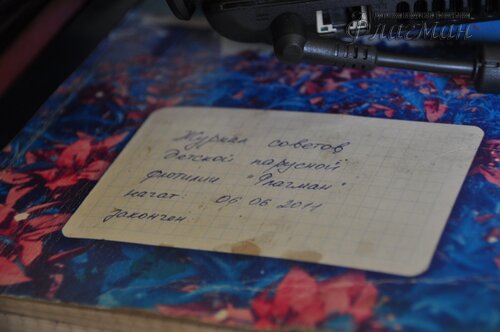 Флагман
Журнал советов
детской парусной
флотилии "Флагман"
начат: 06.06 2011
закончен